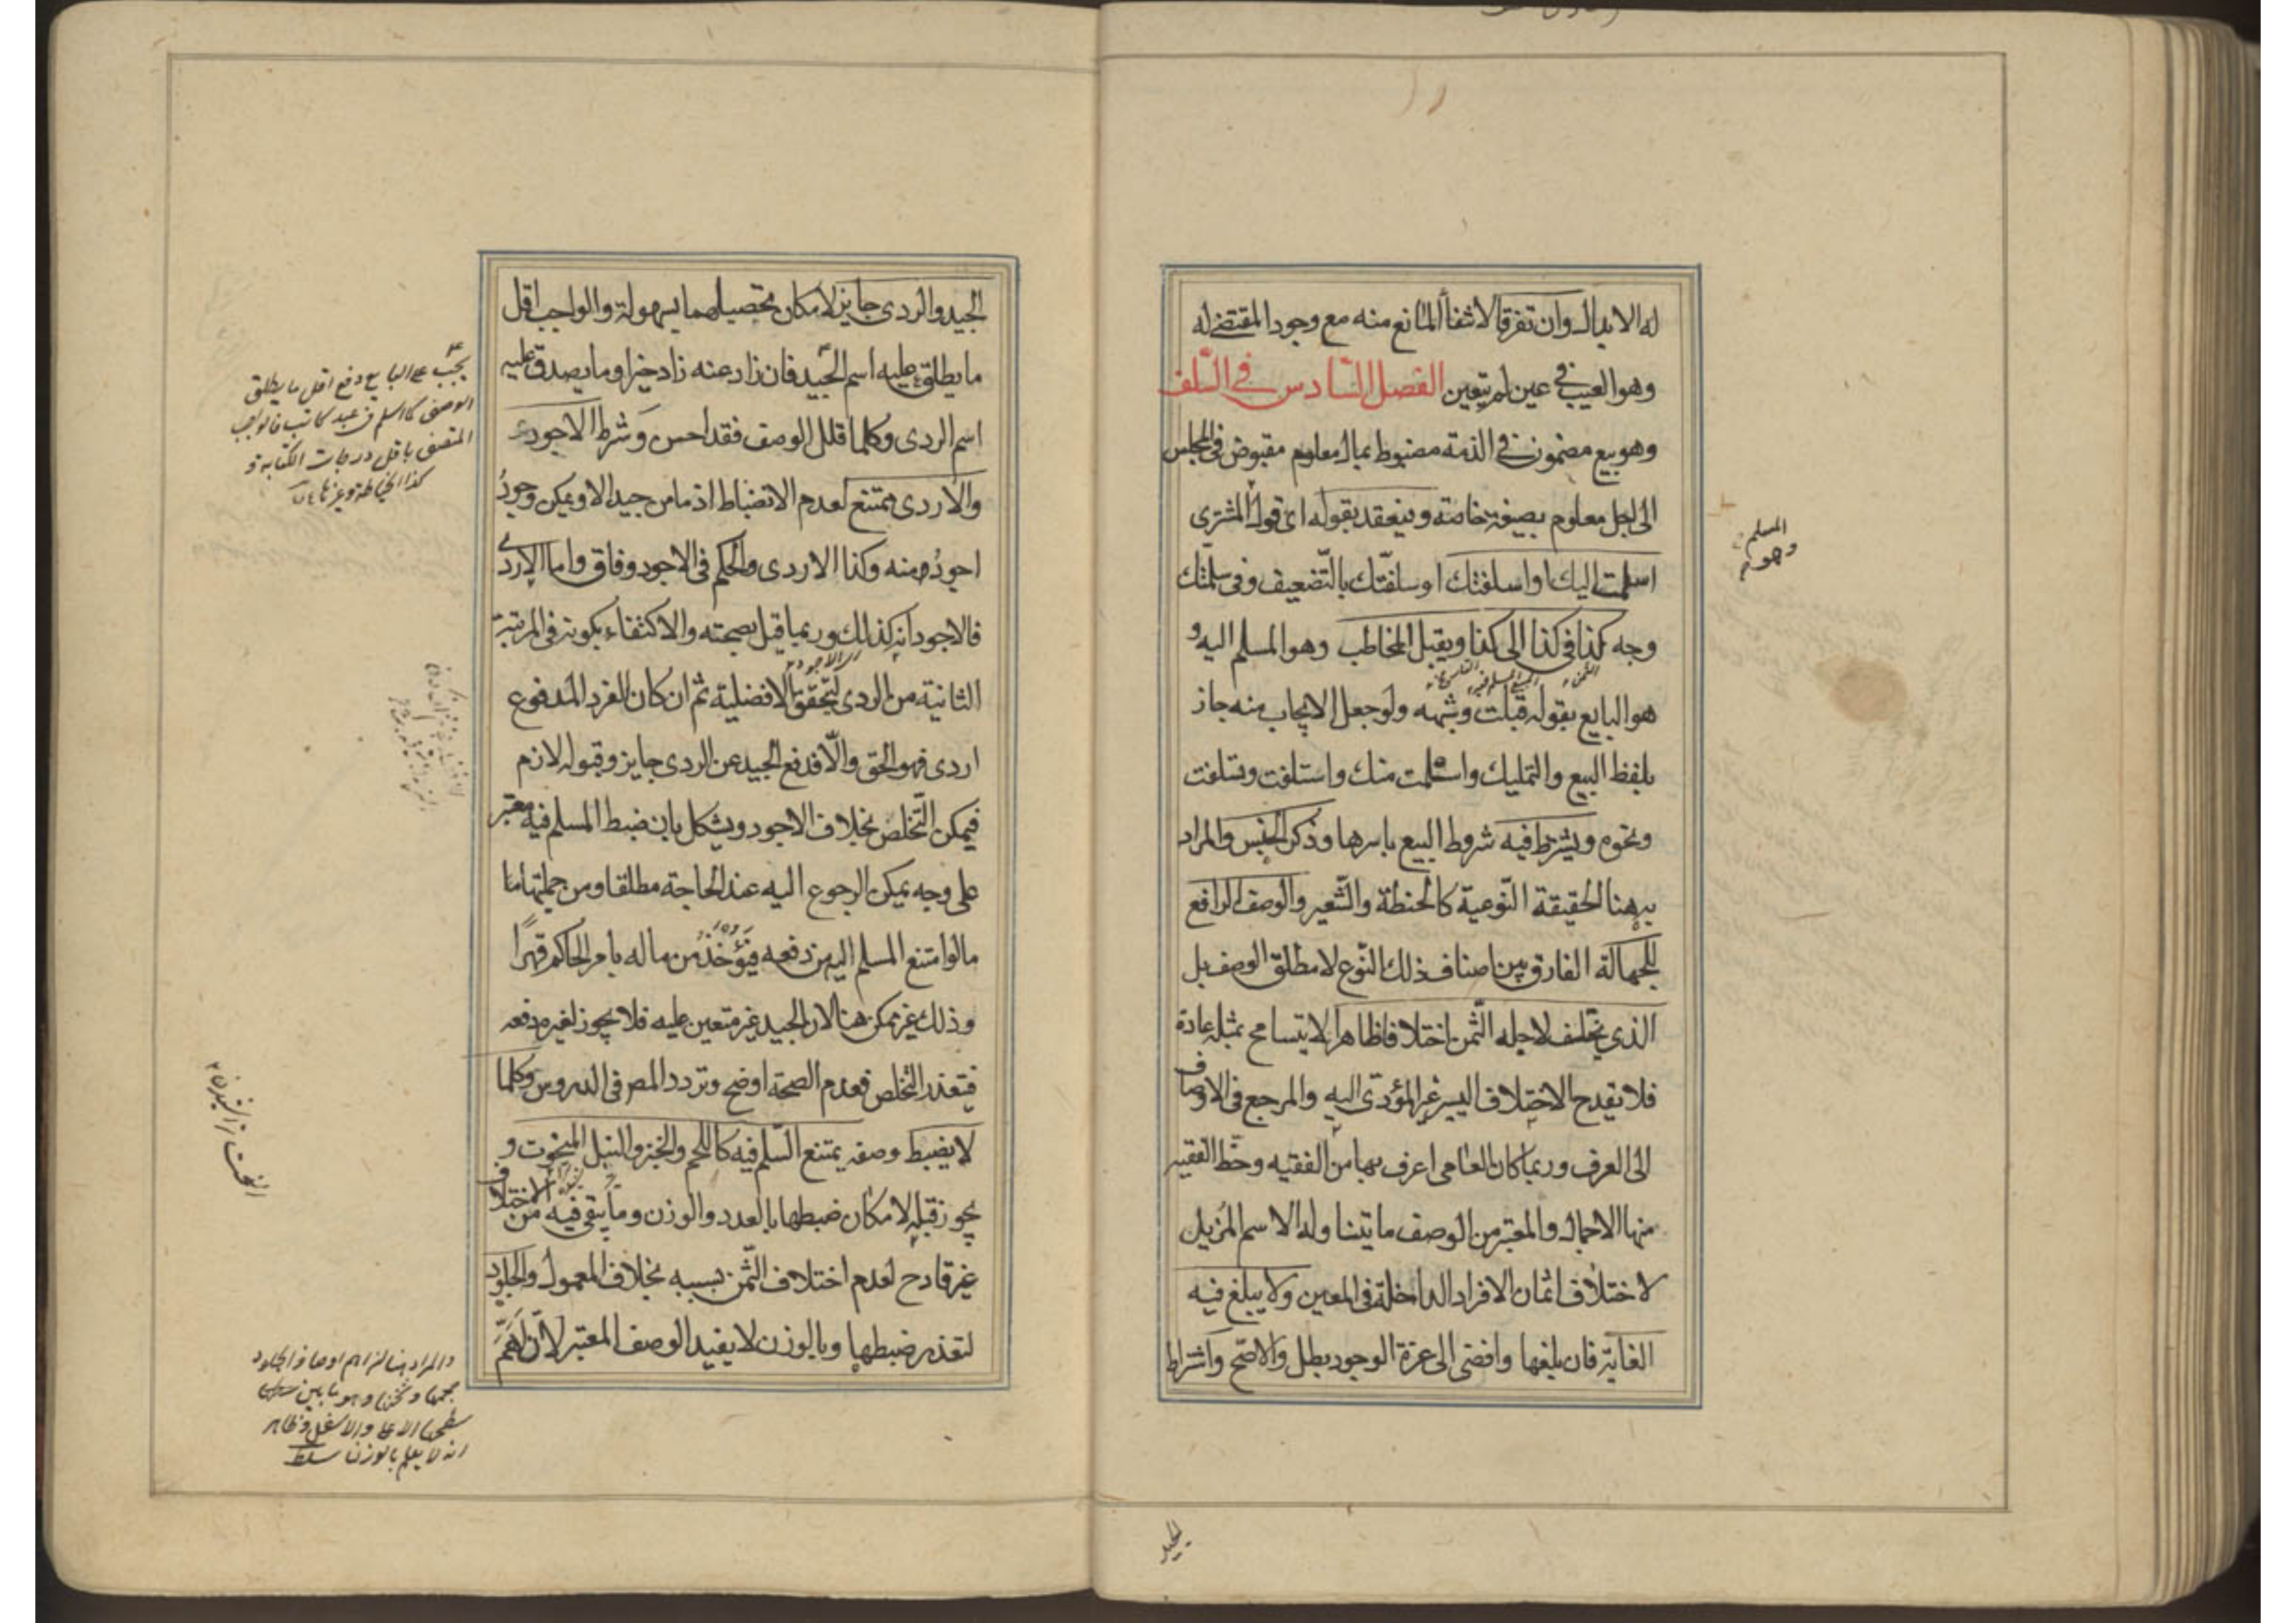 له الابدال وان تفرقا لانتفاء المانع منه مع وجود المقتضى له
وهو العيب في عين لم يتعين الفصل السّادس في السّلف
وهو بيع مضمون في الذمة مضبوط بمال معلوم مقبوض في المجلس
الى اجل معلوم بصيغة خاصة وينعقد بقوله اى قول المشترى
اسلمت اليك او اسلفتك او سلفّتك بالتّضعيف وفى سلّمتك
وجه كذا في كذا الى كذا ويقبل المخاطب وهو المسلم اليه و
هو البايع بقوله قبلت وشبهه ولو جعل الايجاب منه جاز
بلفظ البيع والتمليك واستلمت منك واستلفت وتسلفت
ونحوه ويشترط فيه شروط البيع باسرها وذكر الجنس والمراد
به هنا الحقيقة النّوعية كالحنطة والشّعير والوصف الرافع
للجهالة الفارق بين اصناف ذلك النّوع لا مطلق الوصف بل
الذي يختلف لاجله الثّمن اختلافا ظاهرا لا يتسامح بمثله عادة
فلا يقدح الاختلاف اليسير غير المؤدّى اليه والمرجع فى الاوصاف
الى العرف وربما كان العامى اعرف بها من الفقيه وحظّ الفقيه
منها الاجمال والمعتبر من الوصف ما يتناوله الاسم المزيل
لاختلاف اثمان الافراد الداخلة فى المعين ولا يبلغ فيه
الغاية فان بلغها وافضى الى عزة الوجود بطل والاصّح واشتراط
المسلم
وهو
الجيد
الجيد والردى جايز لامكان تحصيلهما بسهولة والواجب اقل
ما يطلق عليه اسم الجيّد فان زاد عنه زاد خيرا وما يصدق عليه
اسم الردى وكلما قلل الوصف فقد احسن وشرط الاجود
والاردى ممتنع لعدم الانضباط اذ ما من جيد الا ويمكن وجودُ
اجودُ منه وكذا الاردى والحكم فى الاجود وفاق واما الاردى
فالاجود انه كذلك وربما قيل بصحته والاكتفاء بكونه فى المرتبة
الثانية من الردى لتحقق الافضلية ثم ان كان الفرد المدفوع
اردى فهو الحق والّا فدفع الجيد عن الردى جايز وقبوله لازم
فيمكن التّخلص بخلاف الاجود ويشكل بان ضبط المسلم فيه معتبر
على وجه يمكن الرجوع اليه عند الحاجة مطلقا ومن جملتها ما
ما لو امتنع المسلم اليه من دفعه فيؤخذُ من ماله بامر الحاكم قهرًا
وذلك غير ممكن هنا لان الجيد غير متعين عليه فلا يجوز لغيره دفعه
فيتعذر التخلص فعدم الصحة اوضح وتردد المصر فى الدروس وكلما
لا يضبط وصفه يمتنع السّلم فيه كاللحم والخبز والنبل المنحوت و
يجوز قبله لامكان ضبطها بالعدد والوزن وما يبقى فيه من الاختلاف
غير قادح لعدم اختلاف الثّمن بسببه بخلاف المعمول والجلود
لتعذر ضبطها وبالوزن لا يفيد الوصف المعتبر لانّ اهمّ
يجب على البايع دفع اقل ما يطلق
الوصف كما اسلم فى عبد كاتب فالواجب
المتصف باقل درجات الكتابة و
كذا الخياطة وغيرها
والمراد هنا لان اهم اوصاف الجلود
حجمها وثخنها وهو ما بين
سطحها الاعلى والاسفل وظاهر
انه لا يعلم بالوزن